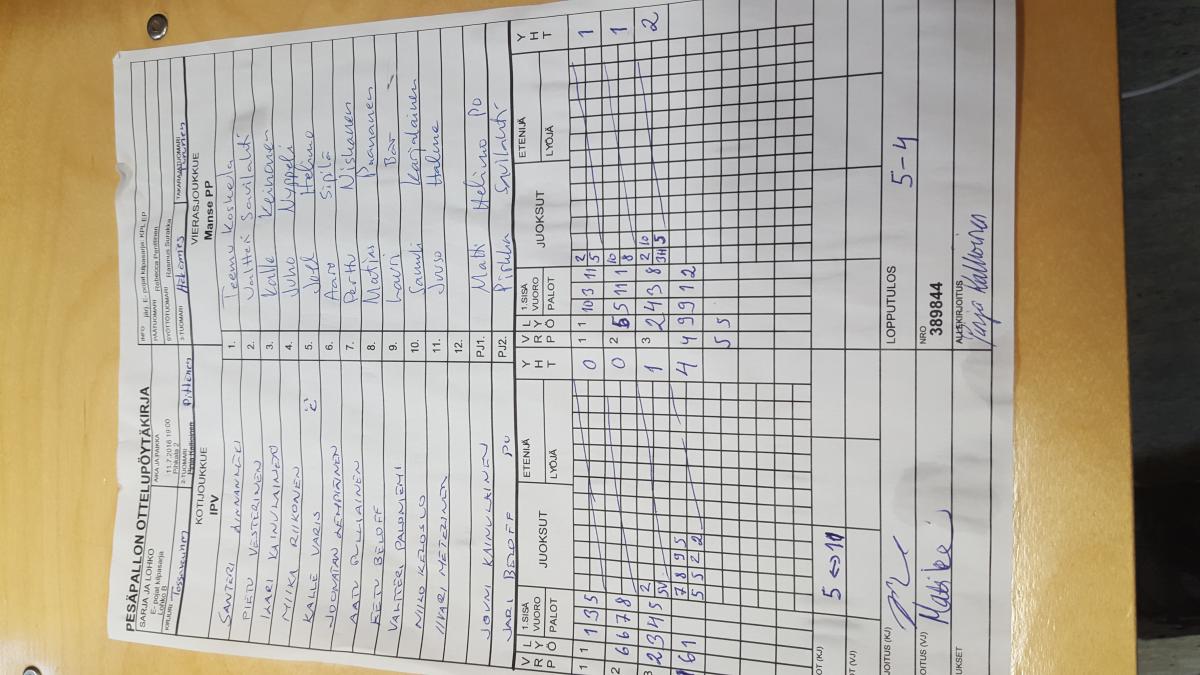 PESÄPALLON OTTELUPÖYTÄKIRJA
SARJA JA LOHKO
E- pojat kilpasarja
Lohko B
AIKA JA PAIKKA
11.7.2016 19:00
Pihkala 2
INFO jtkj. E- pojat kilpasarja, KPL EP
PÄÄTUOMARI Rebecca Penttinen
SYÖTTÖTUOMARI Rasmus Surakka
KIRJURI
2-TUOMARI
3-TUOMARI
TAKARAJATUOMARI
KOTIJOUKKUE
IPV
VIERASJOUKKUE
Manse PP
SANTERI
PIETU VESTERINEN
1. Teemu Koskela
2. Valtteri Savilahti
IKARI KAINULAINEN
3. Kalle Keinonen
MIIKA RIIKONEN
4. Juho Nyppeli
KALLE VARIS
5. Joel Helimo
JOONATAN LEMPIÄINEN
6. Aaro Sipilä
AATU PULLIAINEN
7. Perttu Niskanen
EETU BELOFF
8. Matias Paananen
VALTTERI PALONIEMI
9. Lauri Bär
NIKO
10. Samuli Karjalainen
IIVARI
11. Juuso Halme
12.
JOUNI KAINULAINEN
PJ1. Matti Helimo PO
JARI BELOFF PO
PJ2. Pirkka Savilahti
V R P
L Y Ö
1.SISÄ VUORO
PALOT
JUOKSUT
ETENIJÄ
LYÖJÄ
Y H T
V R P
L Y Ö
1.SISÄ VUORO
PALOT
JUOKSUT
ETENIJÄ
LYÖJÄ
Y H T
1 1 1 3 5
0
1 1 10 3 11
2
5
1
2 6 6 7 8
0
2 5 5 11 1
10
8
1
3 2 3 4 5
2
5V
1
3 2 4 3 8
2 10
3H 5
2
6 1
7 8 9 5
5 5 2 2
4
4 4 9 9 1 2
5 5
5 ↔ 11
LOPPUTULOS 5-4
NRO
389844
ALLEKIRJOITUS